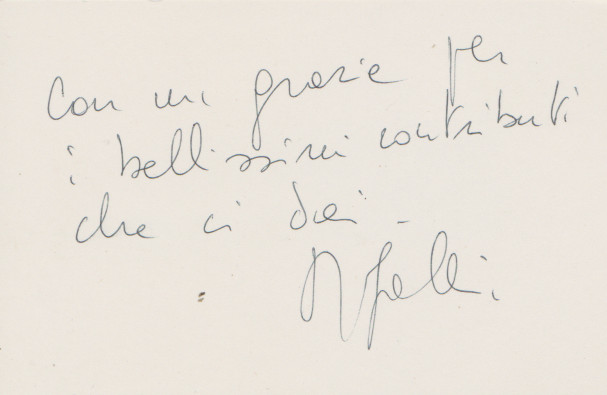 Con un grazie per
i bellissimi contributi
che ci dai -